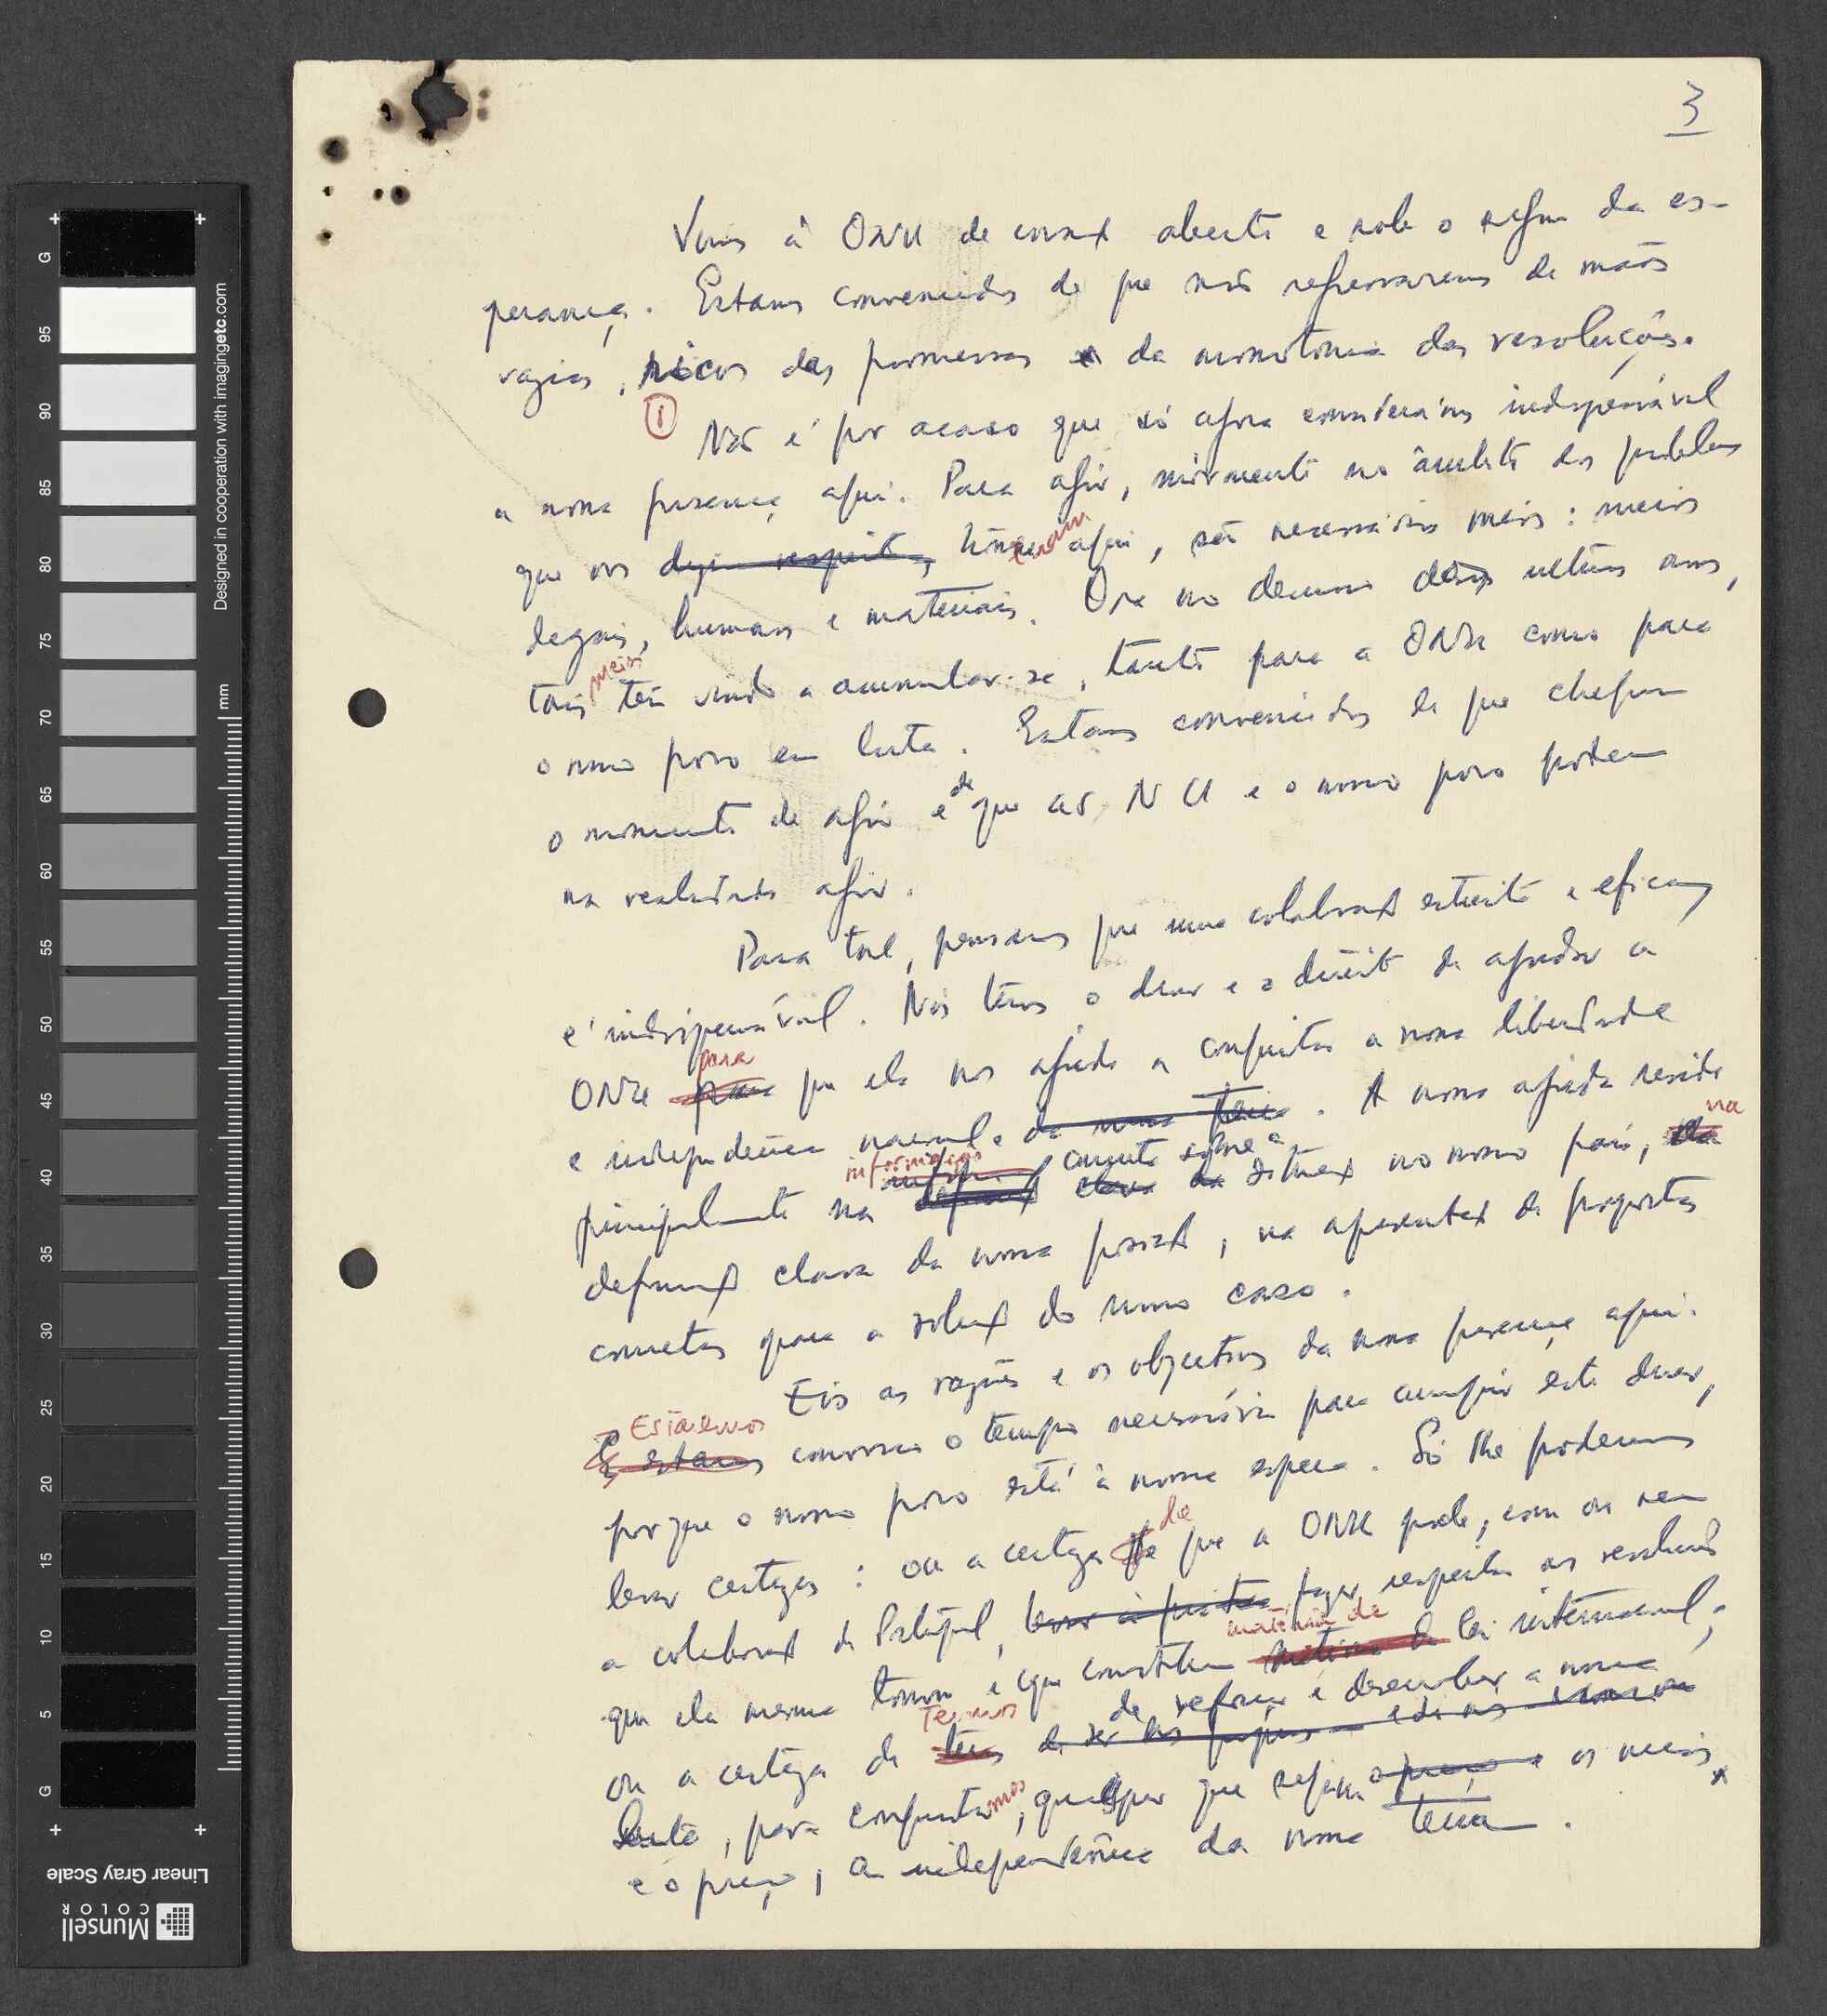 3
Vimos à ONU de coração aberto e sob o signo da es-
perança. Estamos convencidos de que não regressaremos de mãos
vazias, ricos das promessas e da monotonia das resoluções.
① Não é por acaso que só agora considerámos indispensável
a nossa presença aqui. Para agir, no âmbito dos problemas
que nos dizem respeito, trouxeram aqui, são necessários meios: meios
legais, humanos e materiais. Ora no decurso dos últimos anos,
tais meios têm vindo a acumular-se, tanto para a ONU como para
o nosso povo em luta. Estamos convencidos de que chegou
o momento de agir e de que as NU e o nosso povo podem
na realidade agir.
Para tal, pensamos que uma colaboração estreita e eficaz
é indispensável. Nós temos o dever e o direito de ajudar a
ONU para para que ela nos ajude a conquistar a nossa liberdade
e independência nacional e da nossa terra. A nossa ajuda reside
principalmente na informações definição concreta sobre a clara da situação no nosso país, na
definição clara da nossa posição, na apresentação de propostas
concretas para a solução do nosso caso.
Eis as razões e os objectivos da nossa presença aqui.
E estamos Estaremos convosco o tempo necessário para cumprir este dever,
porque o nosso povo está à nossa espera. Só lhe podemos
levar certezas: ou a certeza de que a ONU pode, com ou sem
a colaboração de Portugal, levar à prática fazer respeitar as resoluções
que ela mesma tomou e que constituem matéria de matéria de lei internacional;
ou a certeza de termos temos de reforçar e desenvolver a nossa
luta, para conquistarmos, quaisquer que sejam o preço e os meios
e o preço, a independência da nossa terra.
Designed in cooperation with imagingetc.com
mm
G
95
90
85
80
75
70
65
60
55
50
45
40
35
30
25
20
15
10
5
G
Linear Gray Scale
Munsell
COLOR